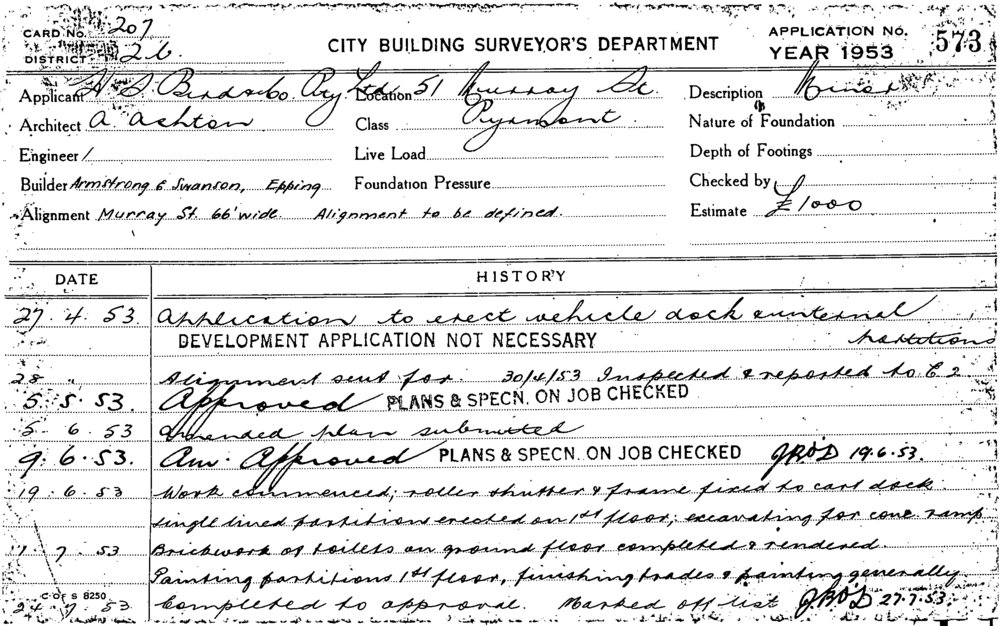 CARD No. 207
DISTRICT 26
CITY BUILDING SURVEYOR'S DEPARTMENT
APPLICATION No. 573
YEAR 1953
Applicant H S Bird & Co Pty Ltd Location 51 Murray St. Description Minor
Architect A Ashton Class Pyrmont. Nature of Foundation
Engineer / Live Load Depth of Footings
Builder Armstrong & Swanson, Epping Foundation Pressure Checked by
Alignment Murray St. 66' wide. Alignment to be defined. Estimate £1000
DATE HISTORY
27. 4. 53 Application to erect vehicle dock & internal
DEVELOPMENT APPLICATION NOT NECESSARY partitions
28 " Alignment sent for. 30/4/53 Inspected & reported to E2
5. 5. 53. Approved PLANS & SPECN. ON JOB CHECKED
5. 6. 53 Amended plan submitted
9. 6. 53. Am. Approved PLANS & SPECN. ON JOB CHECKED 19.6.53.
19. 6. 53 Work commenced; roller shutter & frame fixed to cart dock
single lined partitions erected on 1st floor; excavating for conc. ramp
7. 53 Brickwork of toilets on ground floor completed & rendered.
Painting partitions 1st floor, finishing trades & painting generally
C OF S 8250
24. 7. 53 Completed to approval. Marked off list 27.7.53.